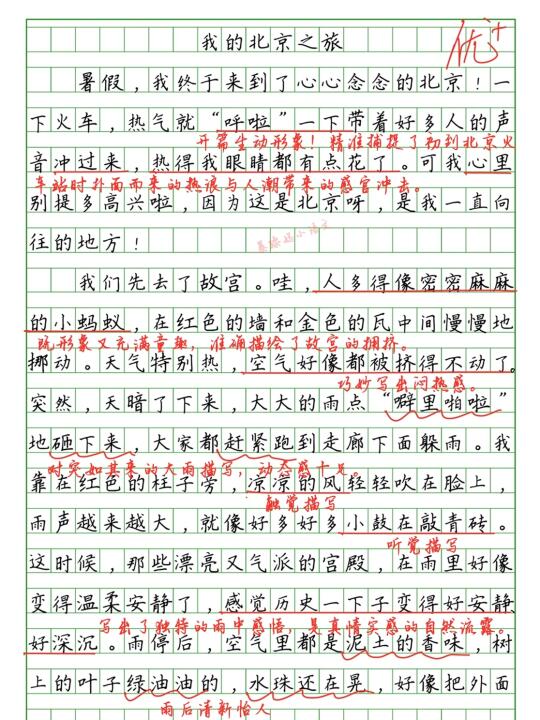 我的北京之旅
优+
暑假，我终于来到了心心念念的北京！一
下火车，热气就“呼啦”一下带着好多人的声
开篇生动形象！精准捕捉了初到北京火
音冲过来，热得我眼睛都有点花了。可我心里
车站时扑面而来的热浪与人潮带来的感官冲击。
别提多高兴啦，因为这是北京呀，是我一直向
往的地方！
我们先去了故宫。哇，人多得像密密麻麻
的小蚂蚁，在红色的墙和金色的瓦中间慢慢地
既形象又充满童趣，准确描绘了故宫的拥挤。
挪动。天气特别热，空气好像都被挤得不动了。
巧妙写出闷热感。
突然，天暗了下来，大大的雨点“噼里啪啦”
地砸下来，大家都赶紧跑到走廊下面躲雨。我
对突如其来的大雨描写，动态感十足。
靠在红色的柱子旁，凉凉的风轻轻吹在脸上，
触觉描写
雨声越来越大，就像好多好多小鼓在敲青砖。
听觉描写
这时候，那些漂亮又气派的宫殿，在雨里好像
变得温柔安静了，感觉历史一下子变得好安静
写出了独特的雨中感悟，是真情实感的自然流露。
好深沉。雨停后，空气里都是泥土的香味，树
上的叶子绿油油的，水珠还在晃，好像把外面
雨后清新怡人